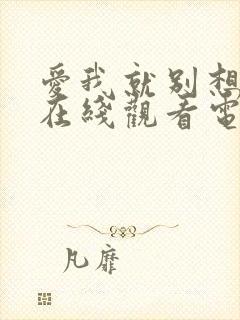 愛我就別想
在綫觀看電
凡靡